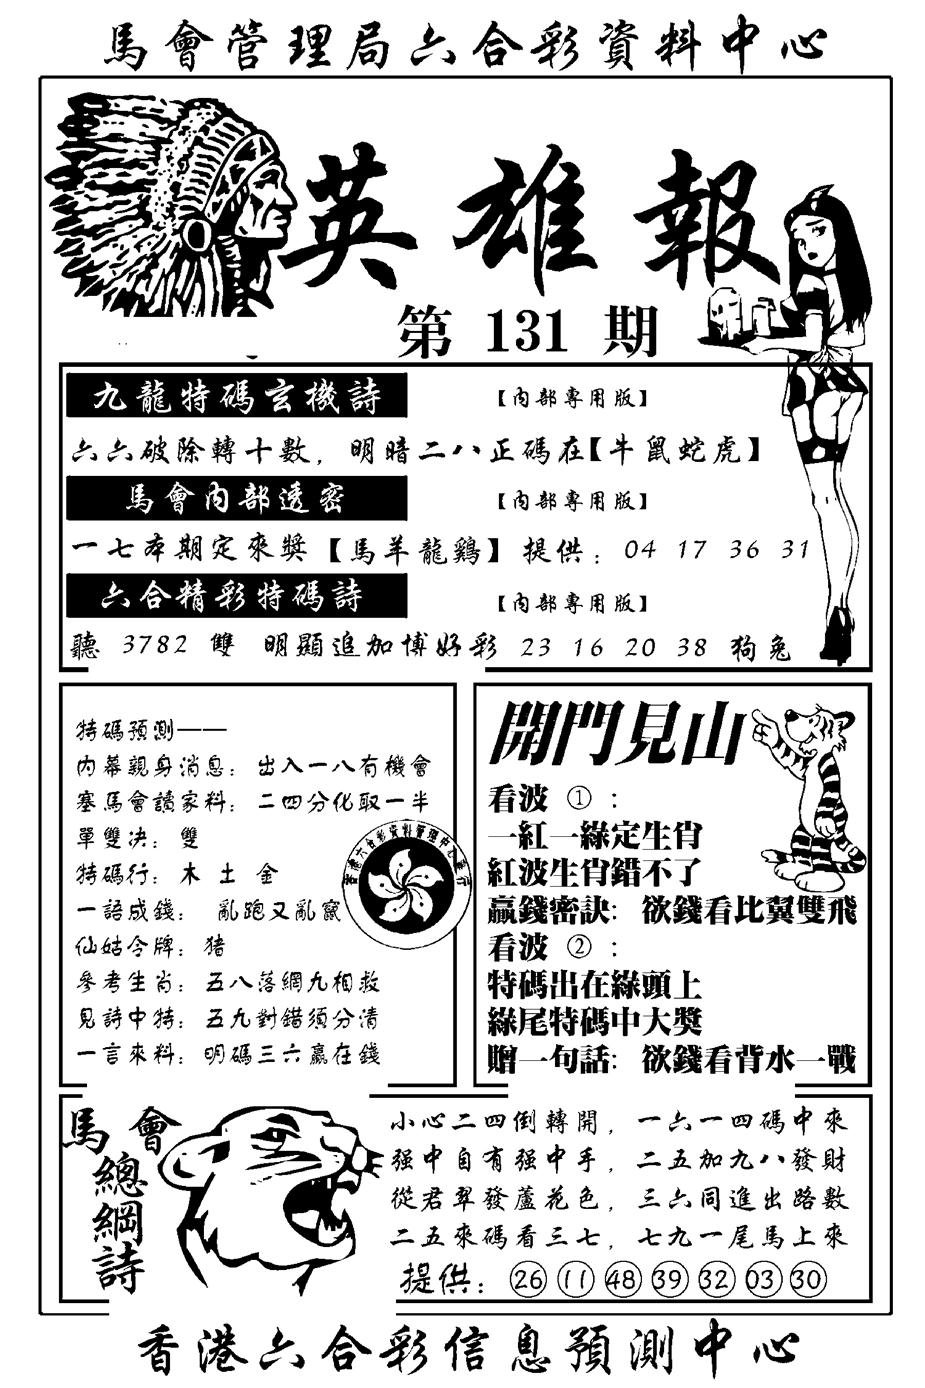 馬會管理局六合彩資料中心
英雄報
第 131 期
九龍特碼玄機詩 【内部專用版】
六六破除轉十數，明暗二八正碼在【牛鼠蛇虎】
馬會内部透密 【内部專用版】
一七本期定來獎【馬羊龍鷄】提供：04 17 36 31
六合精彩特碼詩 【内部專用版】
聽 3782 雙 明顯追加博好彩 23 16 20 38 狗兔
特碼預測——
内幕親身消息：出入一八有機會
塞馬會讀家料：二四分化取一半
單雙決：雙
特碼行：木 土 金
一語成錢：亂跑又亂竄
仙姑令牌：猪
參考生肖：五八落網九相救
見詩中特：五九對錯須分清
一言來料：明碼三六贏在錢
香港六合彩資料管理中心發行
開門見山
看波 ①：
一紅一綠定生肖
紅波生肖錯不了
贏錢密訣：欲錢看比翼雙飛
看波 ②：
特碼出在綠頭上
綠尾特碼中大獎
贈一句話：欲錢看背水一戰
馬會總綱詩
小心二四倒轉開，一六一四碼中來
强中自有强中手，二五加九八發財
從君翠發蘆花色，三六同進出路數
二五來碼看三七，七九一尾馬上來
提供：㉖ ⑪ ㊽ ㊴ ㉜ 03 ㉚
香港六合彩信息預測中心